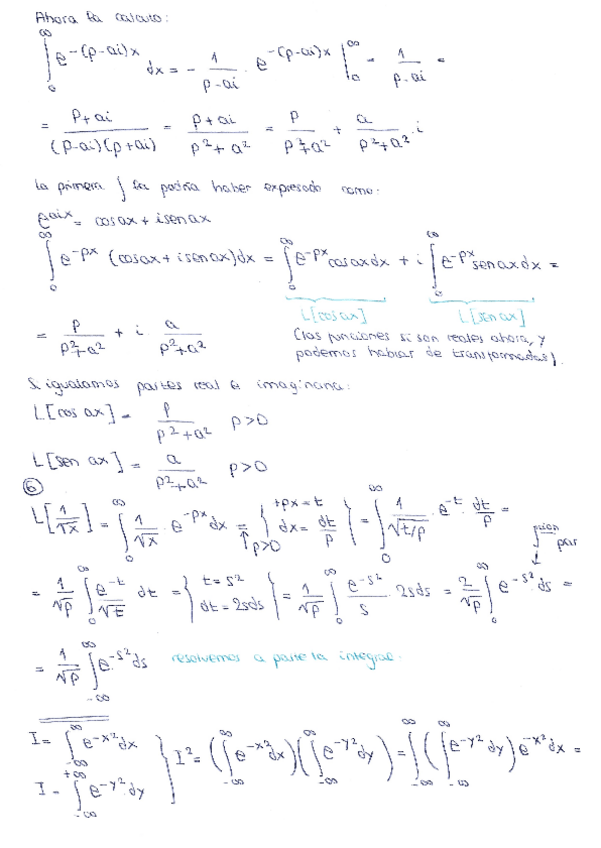 Ahora la calculo:
∫₀^∞ e^{-(p-ai)x} dx = - 1/(p-ai) · e^{-(p-ai)x} |₀^∞ = 1/(p-ai) =
= (p+ai)/((p-ai)(p+ai)) = (p+ai)/(p²+a²) = p/(p²+a²) + a/(p²+a²) · i
La primera ∫ la podría haber expresado como:
e^{aix} = cosax + isenax
∫₀^∞ e^{-px} (cosax + isenax)dx = ∫₀^∞ e^{-px} cosaxdx + i ∫₀^∞ e^{-px} senaxdx =
L[cosax] L[senax]
= p/(p²+a²) + i a/(p²+a²) (las funciones si son reales ahora, y
podemos hablar de transformadas).
Si igualamos partes real e imaginaria:
L[cos ax] = p/(p²+a²) p>0
L[sen ax] = a/(p²+a²) p>0
⑥
L[1/√x] = ∫₀^∞ 1/√x · e^{-px} dx = ↑p>0 { +px = t dx = dt/p } = ∫₀^∞ 1/√(t/p) · e^{-t} dt/p =
par
= 1/√p ∫₀^∞ e^{-t}/√t dt = { t = s² dt = 2sds } = 1/√p ∫₀^∞ e^{-s²}/s · 2sds = 2/√p ∫₀^∞ e^{-s²} ds =
= 1/√p ∫_{-∞}^∞ e^{-s²} ds resolvemos a parte la integral.
I = ∫_{-∞}^∞ e^{-x²} dx } I² = (∫_{-∞}^∞ e^{-x²} dx)(∫_{-∞}^∞ e^{-y²} dy) = ∫_{-∞}^∞ (∫_{-∞}^∞ e^{-y²} dy) e^{-x²} dx =
I = ∫_{-∞}^{+∞} e^{-y²} dy